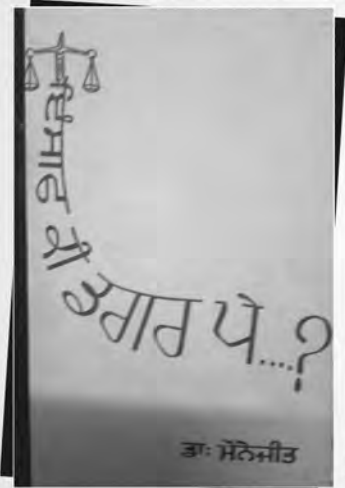 ਇੰਸਾਫ਼ ਕੀ ਡਗਰ ਪੇ....?
ਡਾ: ਮੋਨੋਜੀਤ